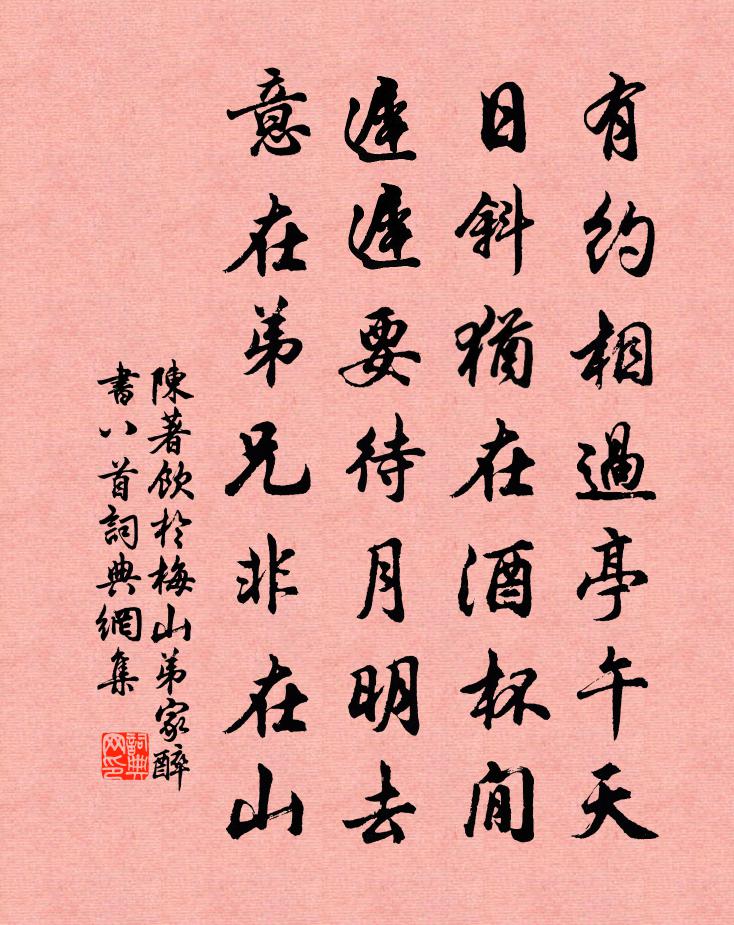 有約相過亭午天
日斜猶在酒杯間
遲遲要待月明去
意在弟兄非在山
陳著飲於梅山弟家醉
書八首詞典網集
詞典
网印